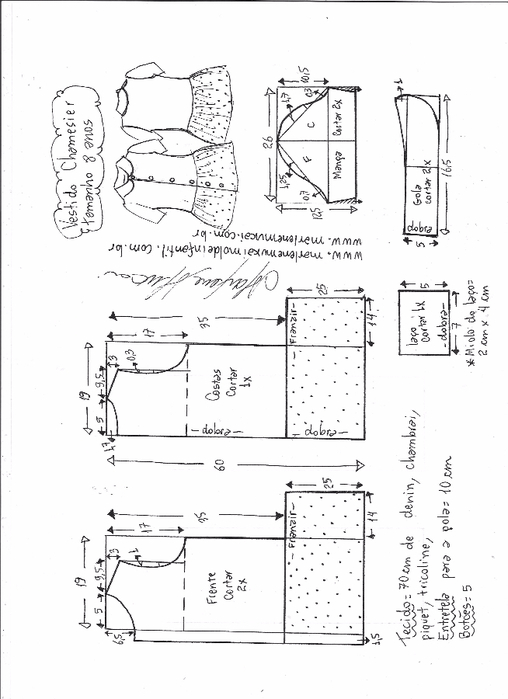 Vestido Chamesier
tamanho 8 anos
www.marlenemukai.com.br
www.marlenemukaimoldeinfantil.com.br
26
10,5
4,7
0,3
C
cortar 2x
F
Manga
4,25
0,7
12,5
1
Gola
cortar 2x
dobra
5
16,5
19
5
9,5
3
17
0,3
1,7
35
Costas
Cortar
1x
dobra
dobra
Franzir
25
14
60
laço
cortar 1x
dobra
5
7
*Miolo do laço=
2 cm x 4 cm
19
5
9,5
3
17
1
6,5
35
Frente
Cortar
2x
Franzir
25
14
1,5
Tecido= 70 cm de denin, chambrai,
piquet, tricoline,
Entretela para a gola= 10 cm
Botões= 5